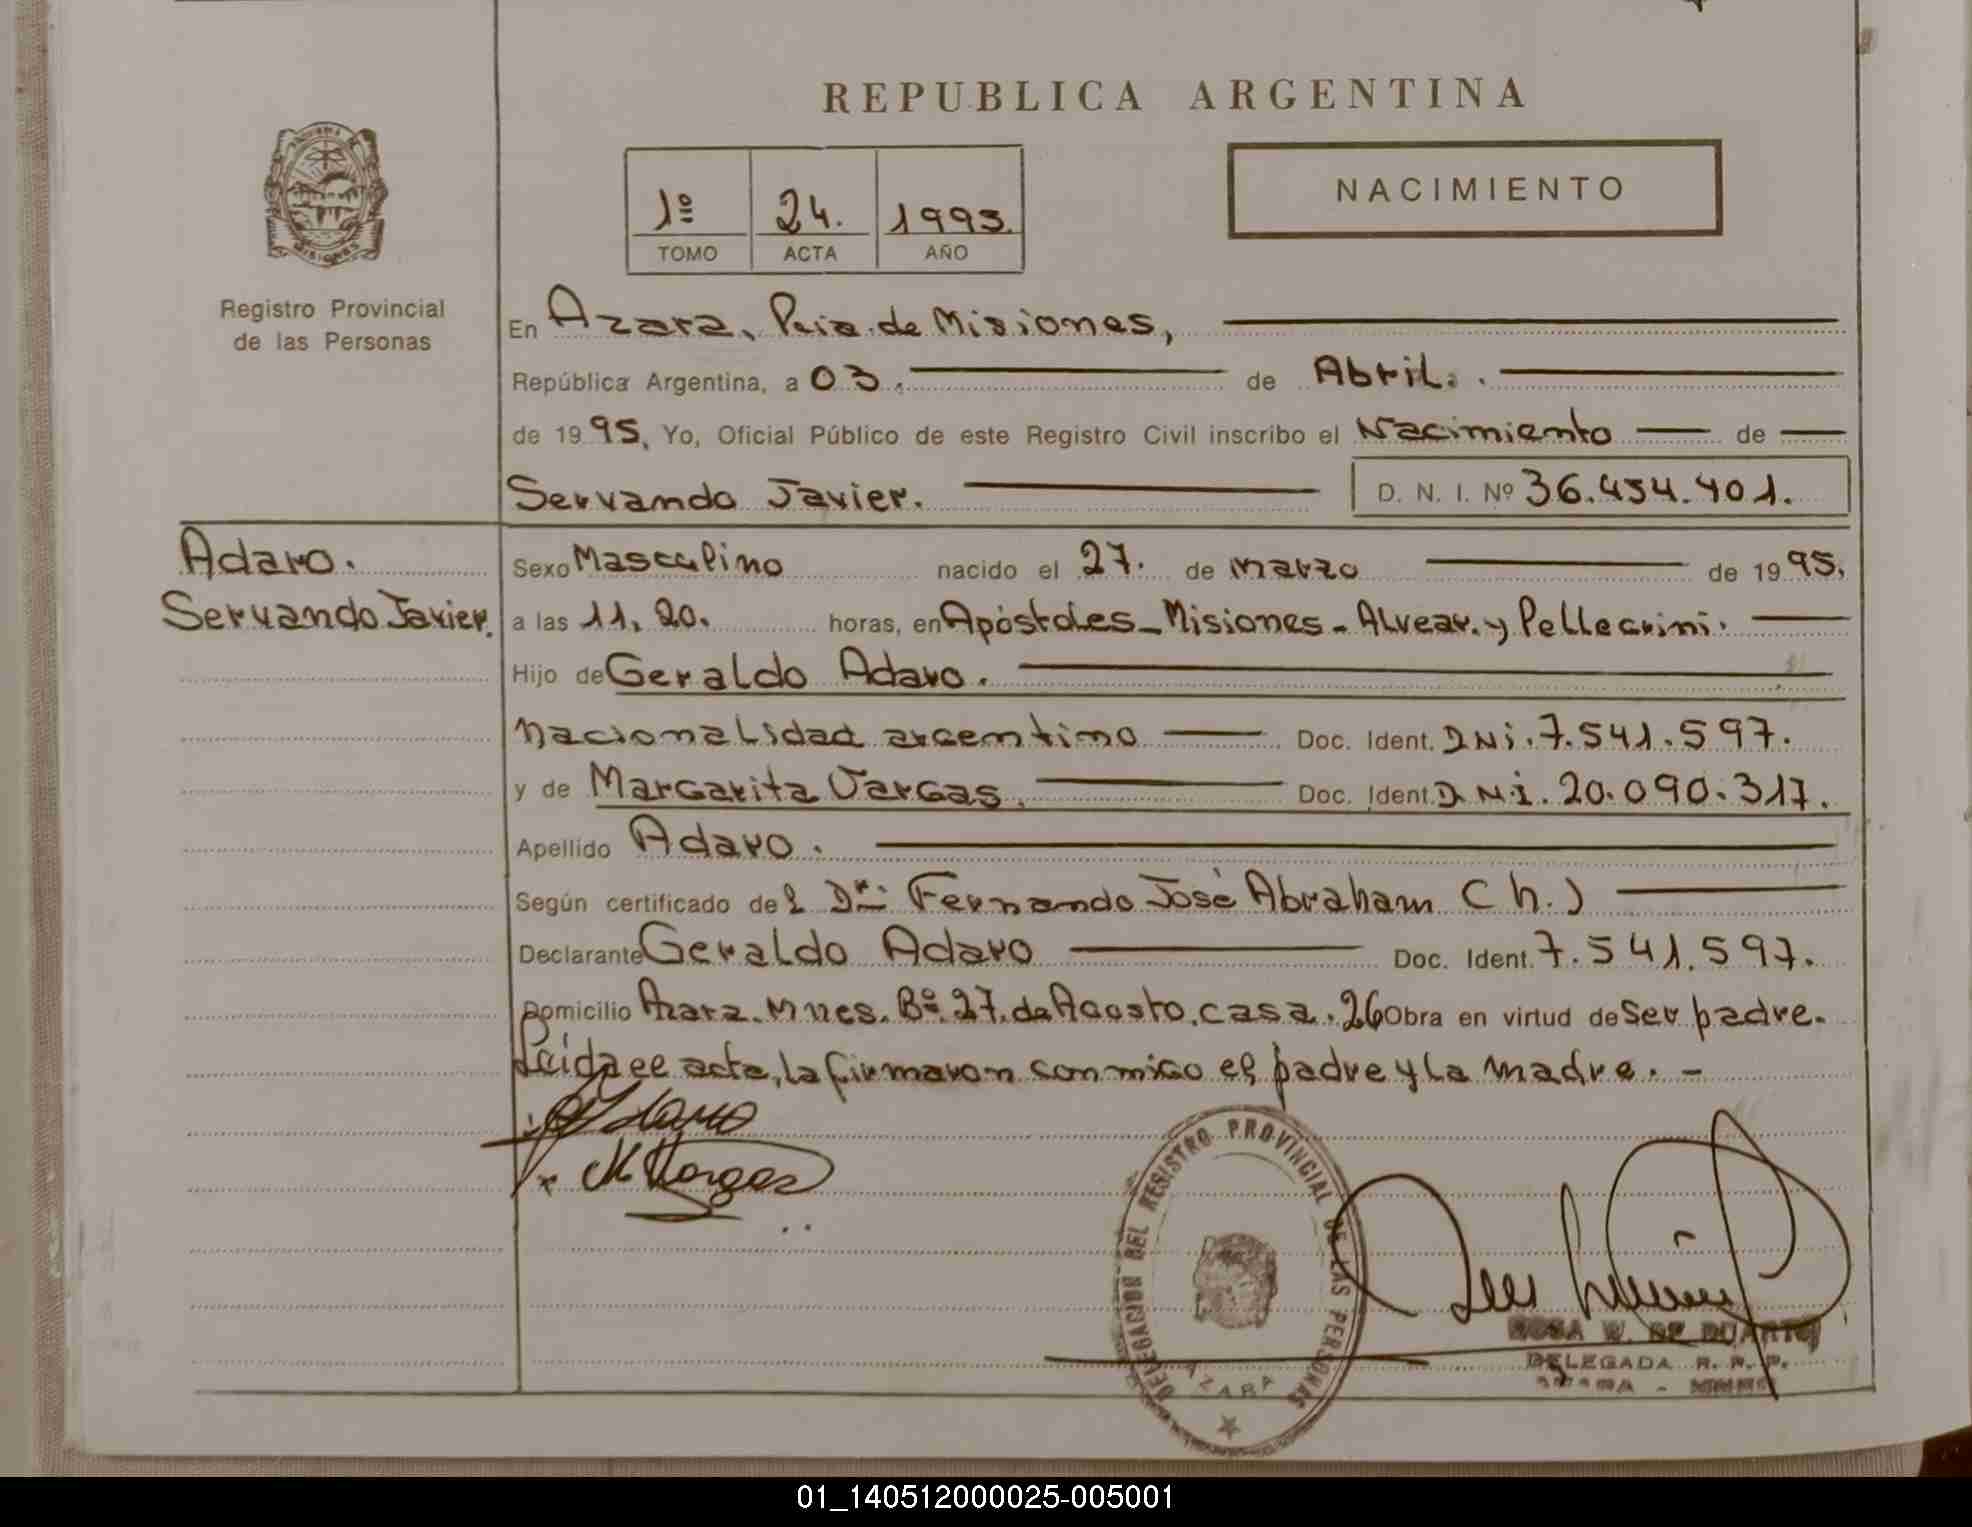 REPUBLICA ARGENTINA
NACIMIENTO
1º 24. 1993.
TOMO ACTA AÑO
Registro Provincial
de las Personas
En Azara, Pcia. de Misiones,
República Argentina, a 03. de Abril.
de 1995, Yo, Oficial Público de este Registro Civil inscribo el Nacimiento de
Servando Javier. D. N. I. Nº 36.454.401.
Adaro.
Servando Javier.
Sexo Masculino nacido el 27. de Marzo de 1995,
a las 11,20. horas, en Apóstoles_Misiones-Alvear.y Pellegrini.
Hijo de Geraldo Adaro.
nacionalidad argentino Doc. Ident. DNi.7.541.597.
y de Margarita Vargas. Doc. Ident. DNi.20.090.317.
Apellido Adaro.
Según certificado del Dr. Fernando José Abraham (h.)
Declarante Geraldo Adaro Doc. Ident. 7.541.597.
Domicilio Azara.Mnes.Bº.27.de Agosto.casa.26 Obra en virtud de ser padre.
Leida el acta, la firmaron conmigo el padre y la madre.-
Adaro
M Vargas
DELEGACION DEL REGISTRO PROVINCIAL DE LAS PERSONAS
AZARA
ROSA W. DE DUARTE
DELEGADA R. P. P.
AZARA - MNES
01_140512000025-005001